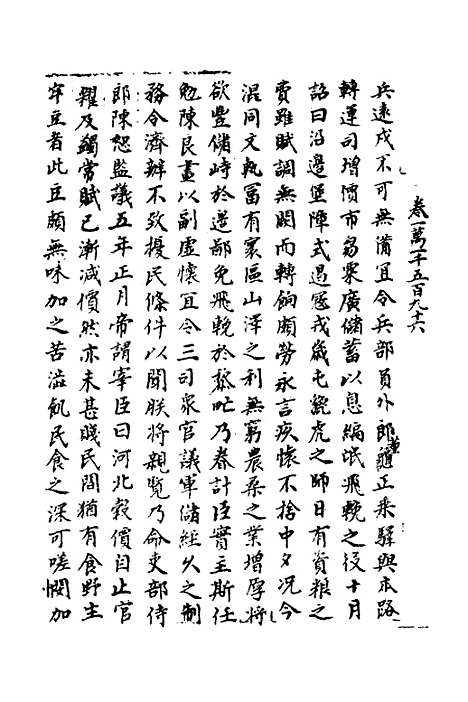 卷一萬一千五百九十六
兵遠戍不可無備宜令兵部員外郎董龜正乘驛與本路
轉運司增價市芻粟廣儲蓄以息編氓飛輓之役十月
詔曰沿邊堡障式遏惑戎歲屯虓虎之師日有資粮之
費雖賦調無闕而轉餉頗勞永言疾懷不捨中夕况今
混同文軌冨有寰區山澤之利無窮農桑之業增厚將
欲豐儲峙於邊鄙免飛輓於黎甿乃眷計臣實主斯任
勉陳良畫以副虛懷宜令三司衆官議軍儲經久之制
務令濟辦不致擾民條件以聞朕將親覽乃命吏部侍
郎陳恕監議五年正月帝謂宰臣曰河北穀價自止官
糴及蠲常賦已漸減價然亦未甚賤民間猶有食野生
牢豆者此豆頗無味加之苦澁飢民食之深可嗟憫加